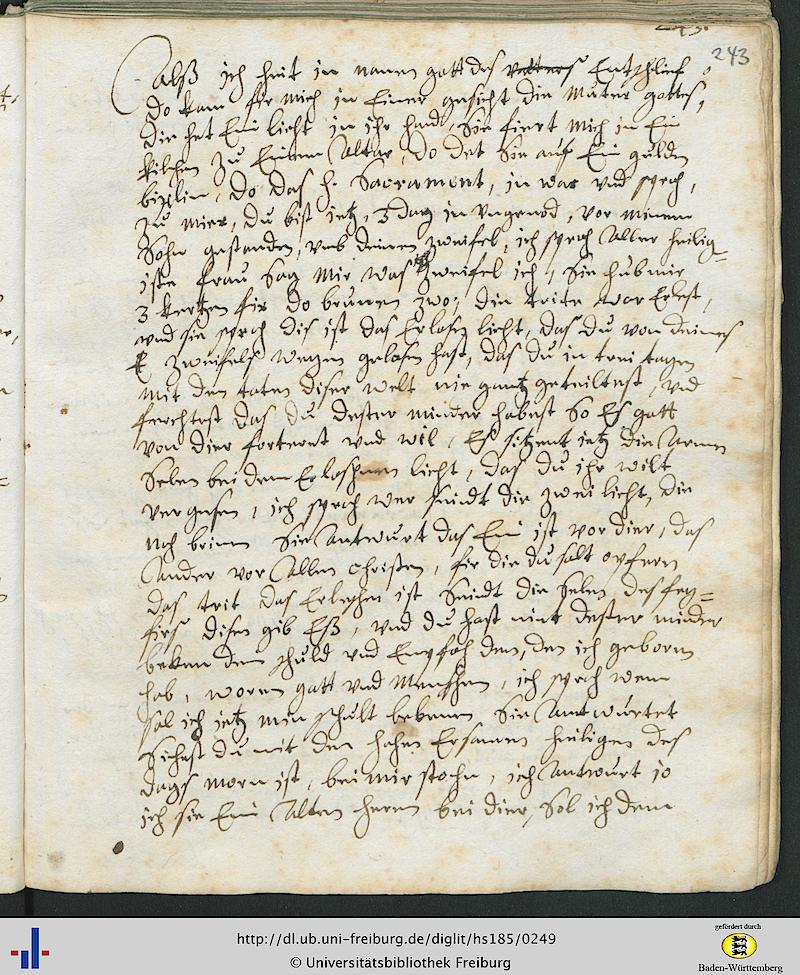 243
Alß ich heüt in namen gott des vatters Entschlief
do kam fir mich in Einer gesicht die Muter gottes,
die het Ein liecht in ihr hand, Sie fiert mich in Ein
kilchen zu Einem Altar, do det Sie auf Ein gulden
bixlin, do das h. Sacrament, in war vnd sprach,
zu mier, du bist jetz, 3 dag in vngenod, vor minem
Sohn gestanden, vmb deinen zweifel, ich sprach Aller heilig=
iste frau Sag mir was zweifel ich, Sie hub mir
3 kertzen fir do brunen zwo, die trite war Erlest,
vnd sie sprach dis ist das Erlosen liecht, das du von deines
zweifels wegen gelosen hast, das du in trei tagen
mit den toten diser welt nie gantz geteiltest, vnd
ferchtest das du dester minder habest So Es gott
von dier forteret vnd wil, Es sitzent jetz die Armen
Selen bei dem Erloschnen liecht, das du ihr wilt
vergesen, ich sprach wer seindt die zwei liecht, die
noch brinen Sie Antwurt das Ein ist vor dier, das
Ander vor Allen Christen, fir die du salt opfern
das trit das Erleschen ist Seindt die Selen des feg=
firs disen gib Eß, vnd du hast nint dester minder
beken dein schuld vnd Empfach den, den ich geboren
hab, woren gott vnd Menschen, ich sprach wem
sol ich jetz min schult bekenen Sie Antwurtet
Sichest du nit den hohen Ersamen heiligen des
dags morn ist, bei mir stohn, ich Antwurt jo
ich sie Ein Alten heren bei dier, Sol ich dem
http://dl.ub.uni-freiburg.de/diglit/hs185/0249
© Universitätsbibliothek Freiburg
gefördert durch
Baden-Württemberg